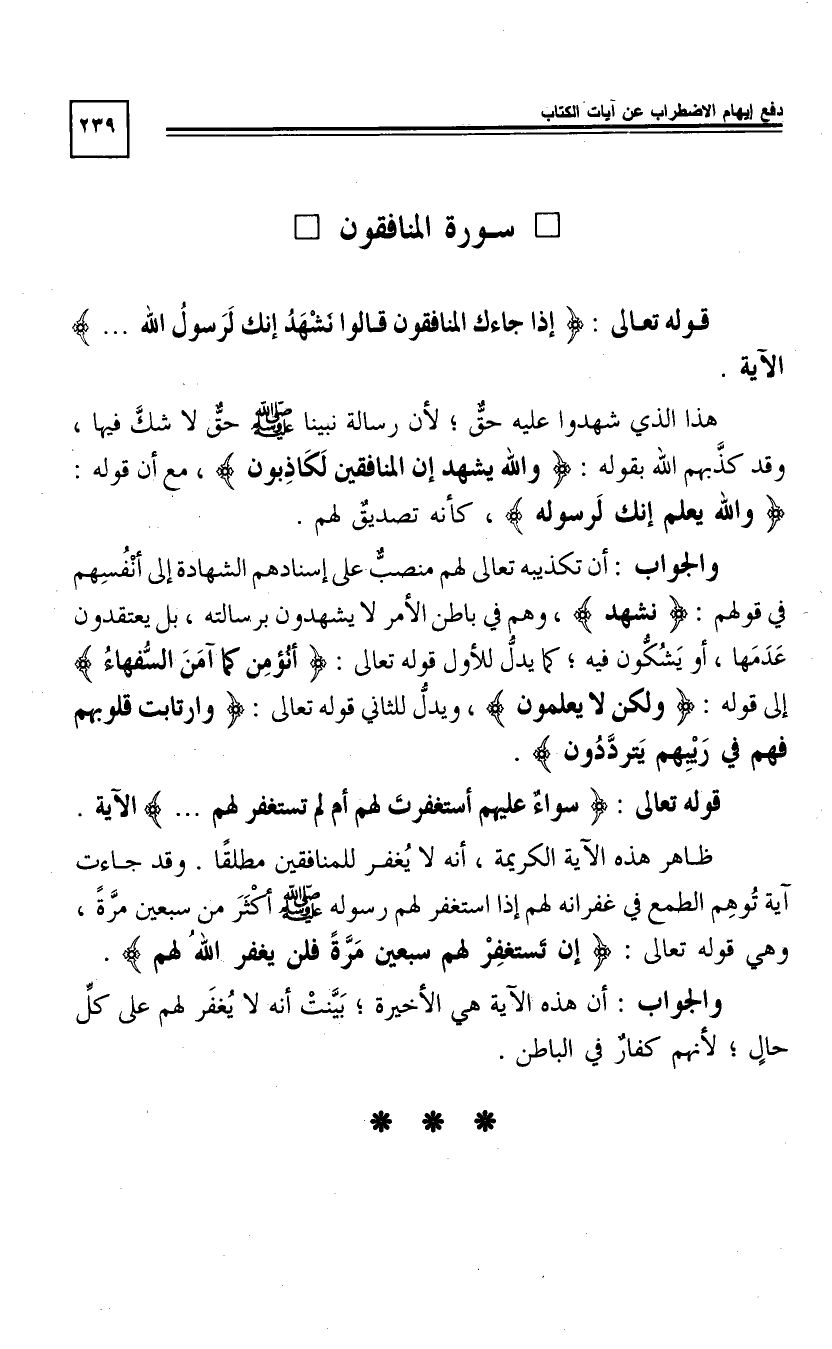 دفع إيهام الاضطراب عن آيات الكتاب
٢٣٩
□ سـورة المنافقون □
قـوله تعـالى : ﴿ إذا جاءك المنافقون قـالوا نَشْهَدُ إنك لَرَسولُ الله ... ﴾
الآية .
هذا الذي شهدوا عليه حقٌّ ؛ لأن رسالة نبينا ﷺ حقٌّ لا شكَّ فيها ،
وقد كذَّبهم الله بقوله : ﴿ والله يشهد إن المنافقين لَكَاذِبون ﴾ ، مع أن قوله :
﴿ والله يعلم إنك لَرسوله ﴾ ، كأنه تصديقٌ لهم .
والجواب : أن تكذيبه تعالى لهم منصبٌّ على إسنادهم الشهادة إلى أنْفُسِهم
في قولهم : ﴿ نشهد ﴾ ، وهم في باطن الأمر لا يشهدون برسالته ، بل يعتقدون
عَدَمَها ، أو يَشُكُّون فيه ؛ كما يدلُّ للأول قوله تعالى : ﴿ أنُؤمِن كما آمَنَ السُّفهاءُ ﴾
إلى قوله : ﴿ ولكن لا يعلمون ﴾ ، ويدلُّ للثاني قوله تعالى : ﴿ وارتابت قلوبهم
فهم في رَيْبِهم يَتردَّدُون ﴾ .
قوله تعالى : ﴿ سواءٌ عليهم أستغفرتَ لهم أم لم تستغفر لهم ... ﴾ الآية .
ظـاهر هذه الآية الكريمة ، أنه لا يُغفـر للمنافقين مطلقًا . وقد جـاءت
آية تُوهِم الطمع في غفرانه لهم إذا استغفر لهم رسوله ﷺ أكْثَرَ من سبعين مرَّةً ،
وهي قوله تعالى : ﴿ إن تَستغفِرْ لهم سبعين مَرَّةً فلن يغفر اللهُ لهم ﴾ .
والجواب : أن هذه الآية هي الأخيرة ؛ بَيَّنتْ أنه لا يُغفَر لهم على كلِّ
حالٍ ؛ لأنهم كفارٌ في الباطن .
* * *